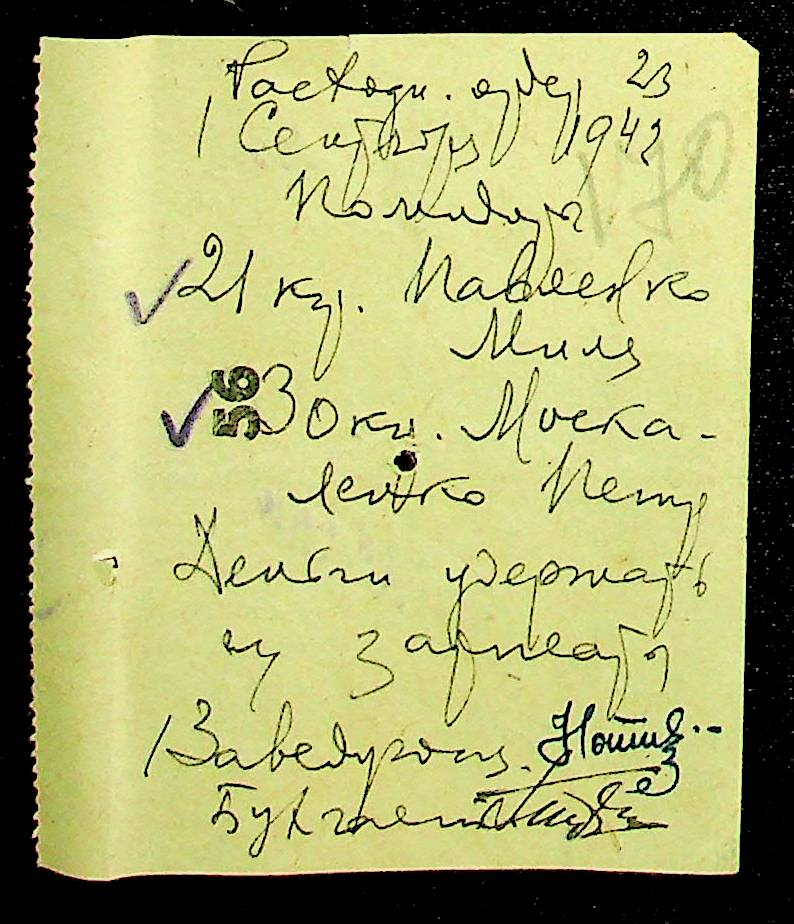 Расходн. ордер 23
1 Сентября 1942
170
Помидоры
21 кг. Павленко
Миля
56
30 кг. Моска-
ленко Петр
Деньги удержать
из зарплаты
Заведующ.
Бухгалт